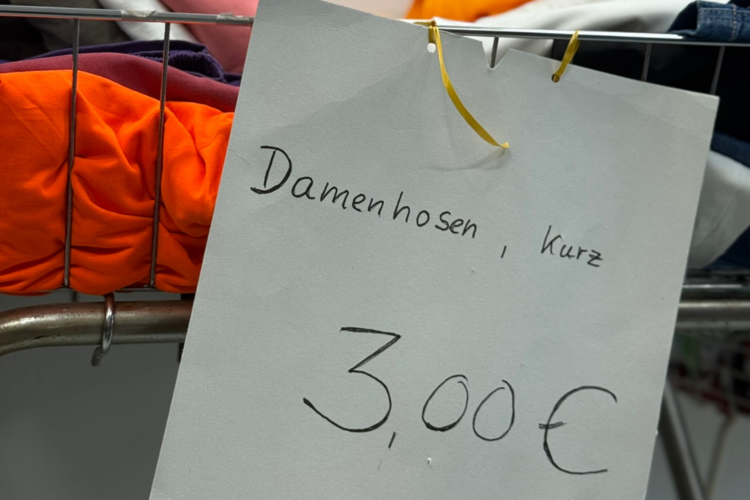 Damenhosen, Kurz
3,00€